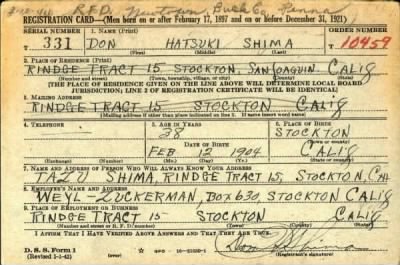 R.F.D. Bucks Co. Penna
REGISTRATION CARD—(Men born on or after February 17, 1897 and on or before December 31, 1921)
SERIAL NUMBER 1. NAME (Print) ORDER NUMBER
T 331 DON HATSUKI SHIMA T 10459
(First) (Middle) (Last)
2. PLACE OF RESIDENCE (Print)
RINDGE TRACT 15 STOCKTON SAN JOAQUIN CALIF
(Number and street) (Town, township, village, or city) (County) (State)
[THE PLACE OF RESIDENCE GIVEN ON THE LINE ABOVE WILL DETERMINE LOCAL BOARD
JURISDICTION; LINE 2 OF REGISTRATION CERTIFICATE WILL BE IDENTICAL]
3. MAILING ADDRESS
RINDGE TRACT 15 STOCKTON CALIF
[Mailing address if other than place indicated on line 2. If same insert word same]
4. TELEPHONE 5. AGE IN YEARS 6. PLACE OF BIRTH
38 STOCKTON
DATE OF BIRTH (Town or county)
FEB 12 1904 CALIF
(Exchange) (Number) (Mo.) (Day) (Yr.) (State or country)
7. NAME AND ADDRESS OF PERSON WHO WILL ALWAYS KNOW YOUR ADDRESS
SHIMA, RINDGE TRACT 15, STOCKTON, CAL
8. EMPLOYER'S NAME AND ADDRESS
WEYL-ZUCKERMAN, BOX 630, STOCKTON CALIF
9. PLACE OF EMPLOYMENT OR BUSINESS
RINDGE TRACT 15 STOCKTON CALIF
(Number and street or R. F. D. number) (Town) (County) (State)
I AFFIRM THAT I HAVE VERIFIED ABOVE ANSWERS AND THAT THEY ARE TRUE.
D. S. S. Form 1
(Revised 1-1-42) (over) Don H Shima
(Registrant's signature)